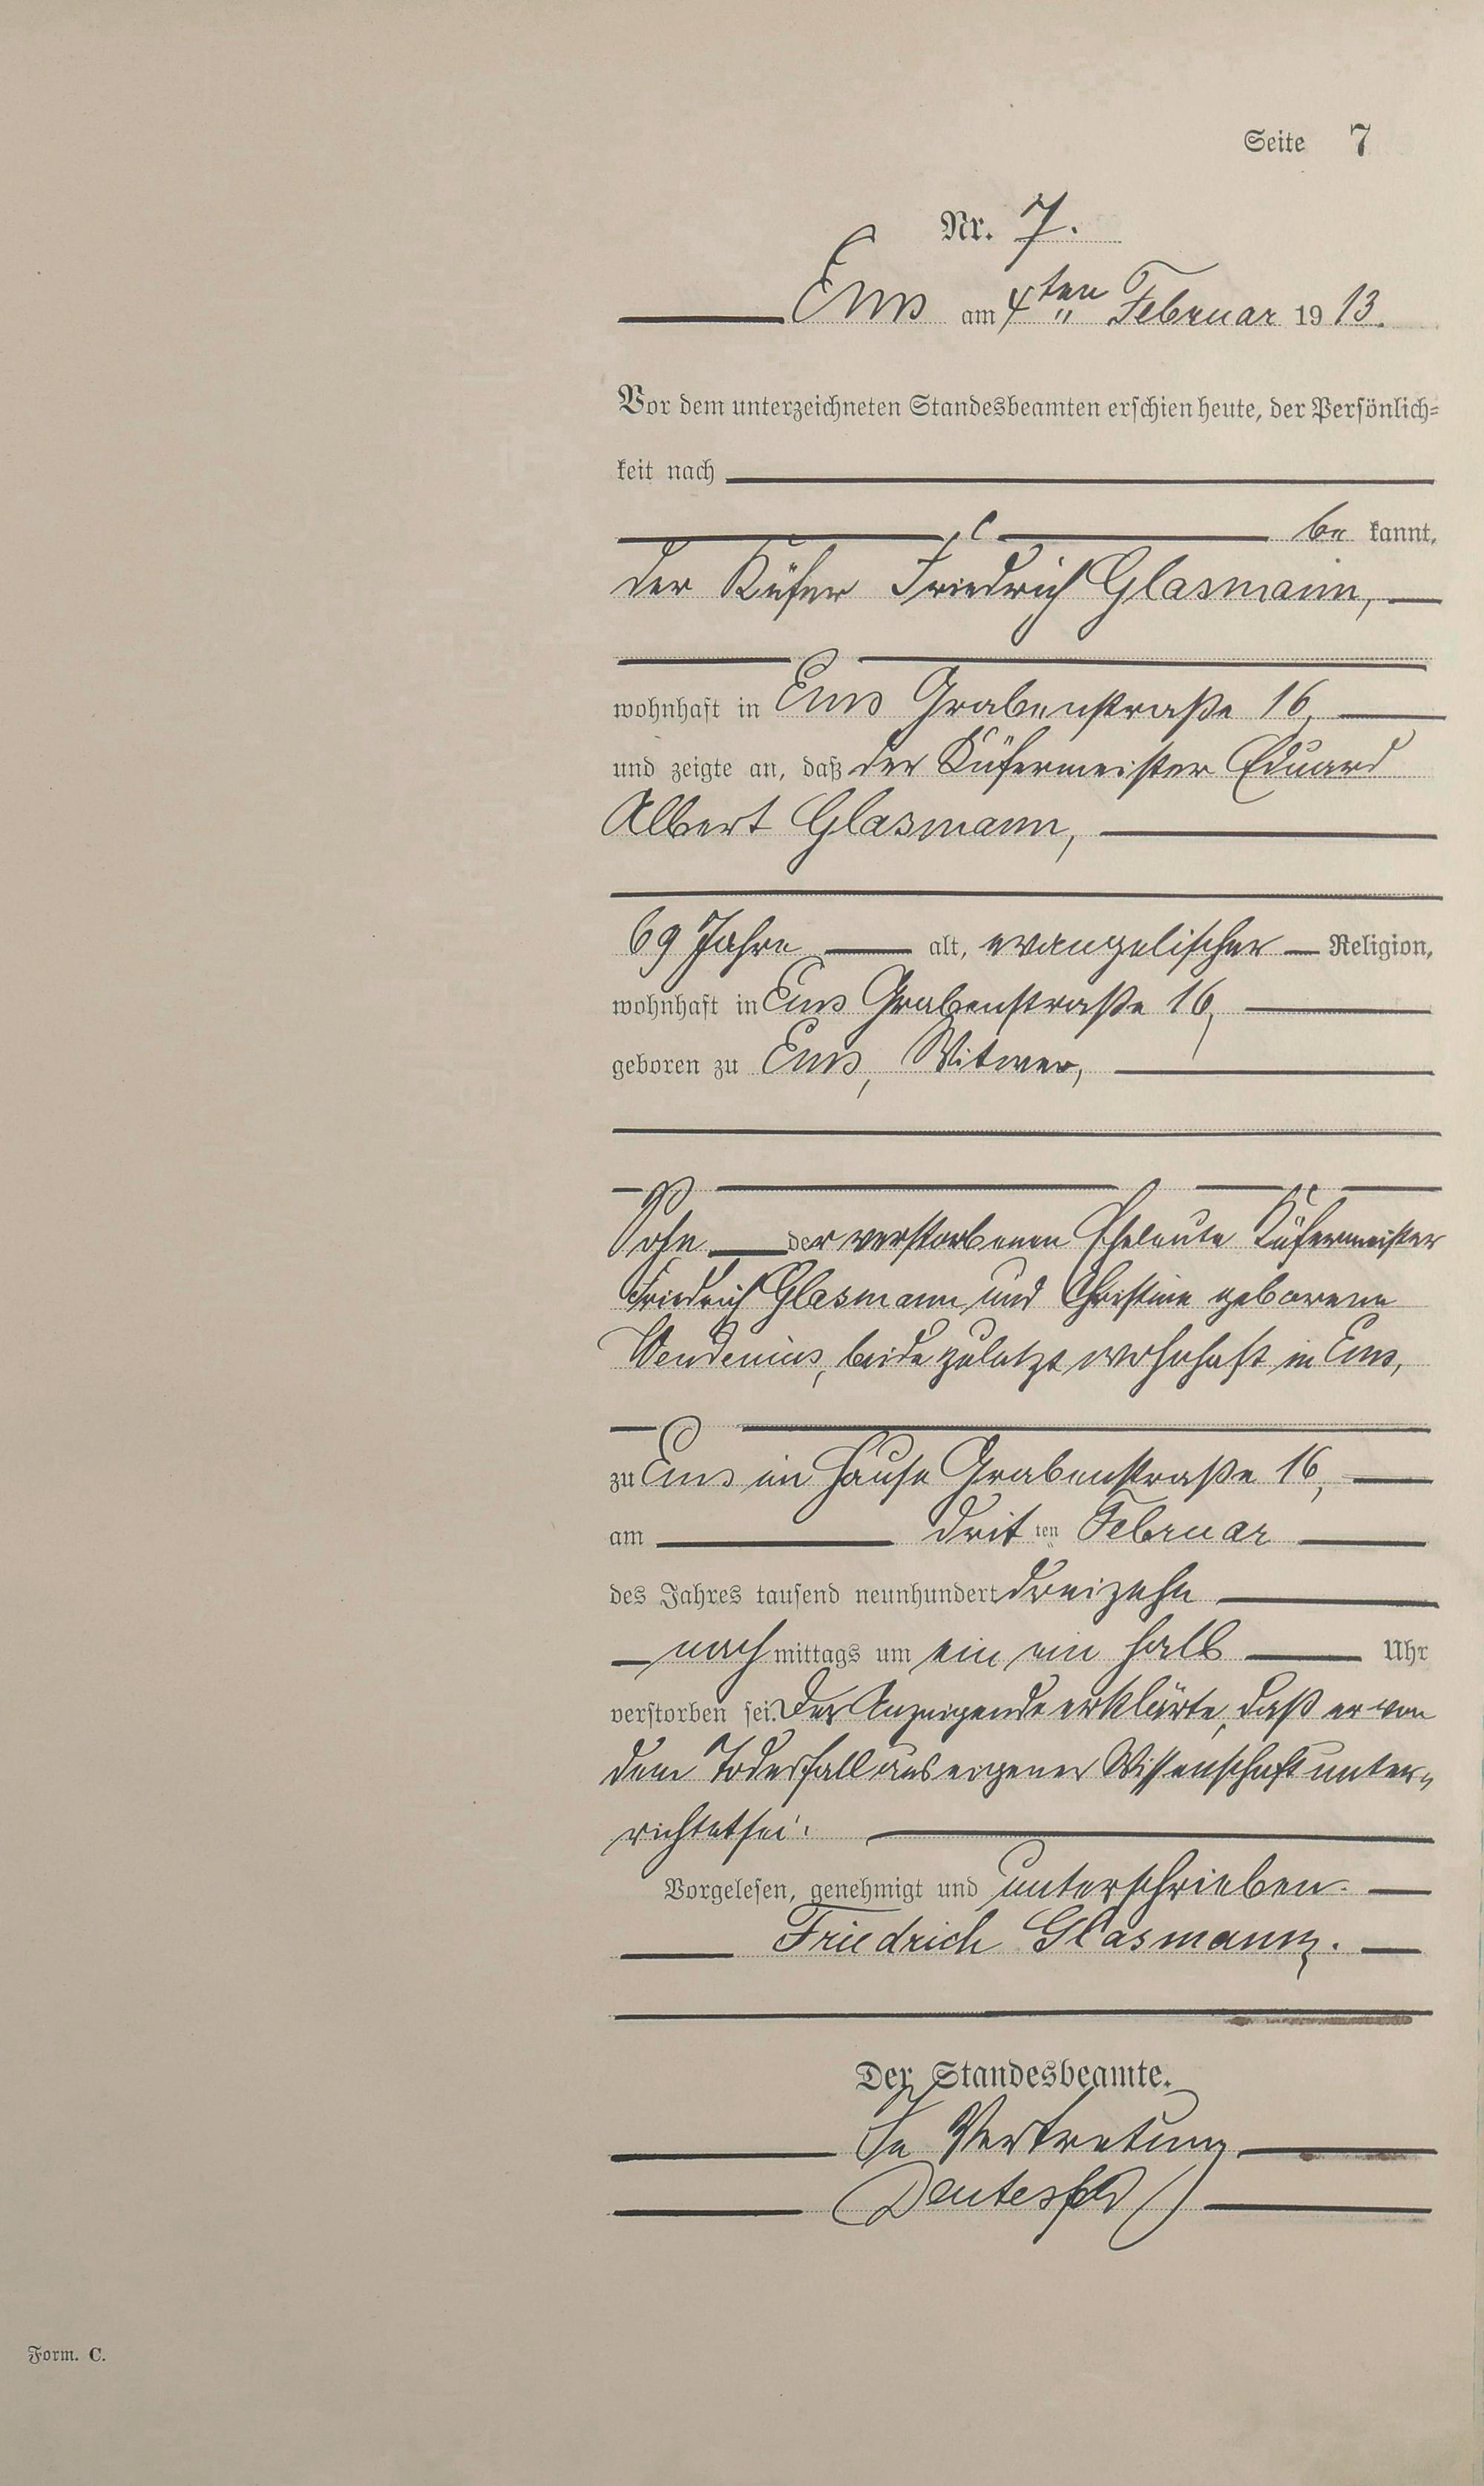 Seite 7
Nr. 7.
Ems am 4ten Februar 19 13.
Vor dem unterzeichneten Standesbeamten erschien heute, der Persönlich=
keit nach
be kannt,
der Küfer Friedrich Glasmann,
wohnhaft in Ems Grabenstraße 16,
und zeigte an, daß der Küfermeister Eduard
Albert Glasmann,
69 Jahre alt, evangelischer Religion,
wohnhaft in Ems Grabenstraße 16,
geboren zu Ems, Witwer,
Sohn der verstorbenen Eheleute Küfermeister
Friedrich Glasmann und Christine geborene
Wendenius, beide zuletzt wohnhaft in Ems,
zu Ems im Hause Grabenstraße 16,
am drit ten Februar
des Jahres tausend neunhundert dreizehn
nach mittags um ein ein halb Uhr
verstorben sei. Der Anzeigende erklärte, daß er von
dem Todesfall aus eigener Wissenschaft unter„
richtet sei.
Vorgelesen, genehmigt und unterschrieben.
Friedrich Glasmann.
Der Standesbeamte.
In Vertretung
Form. C.